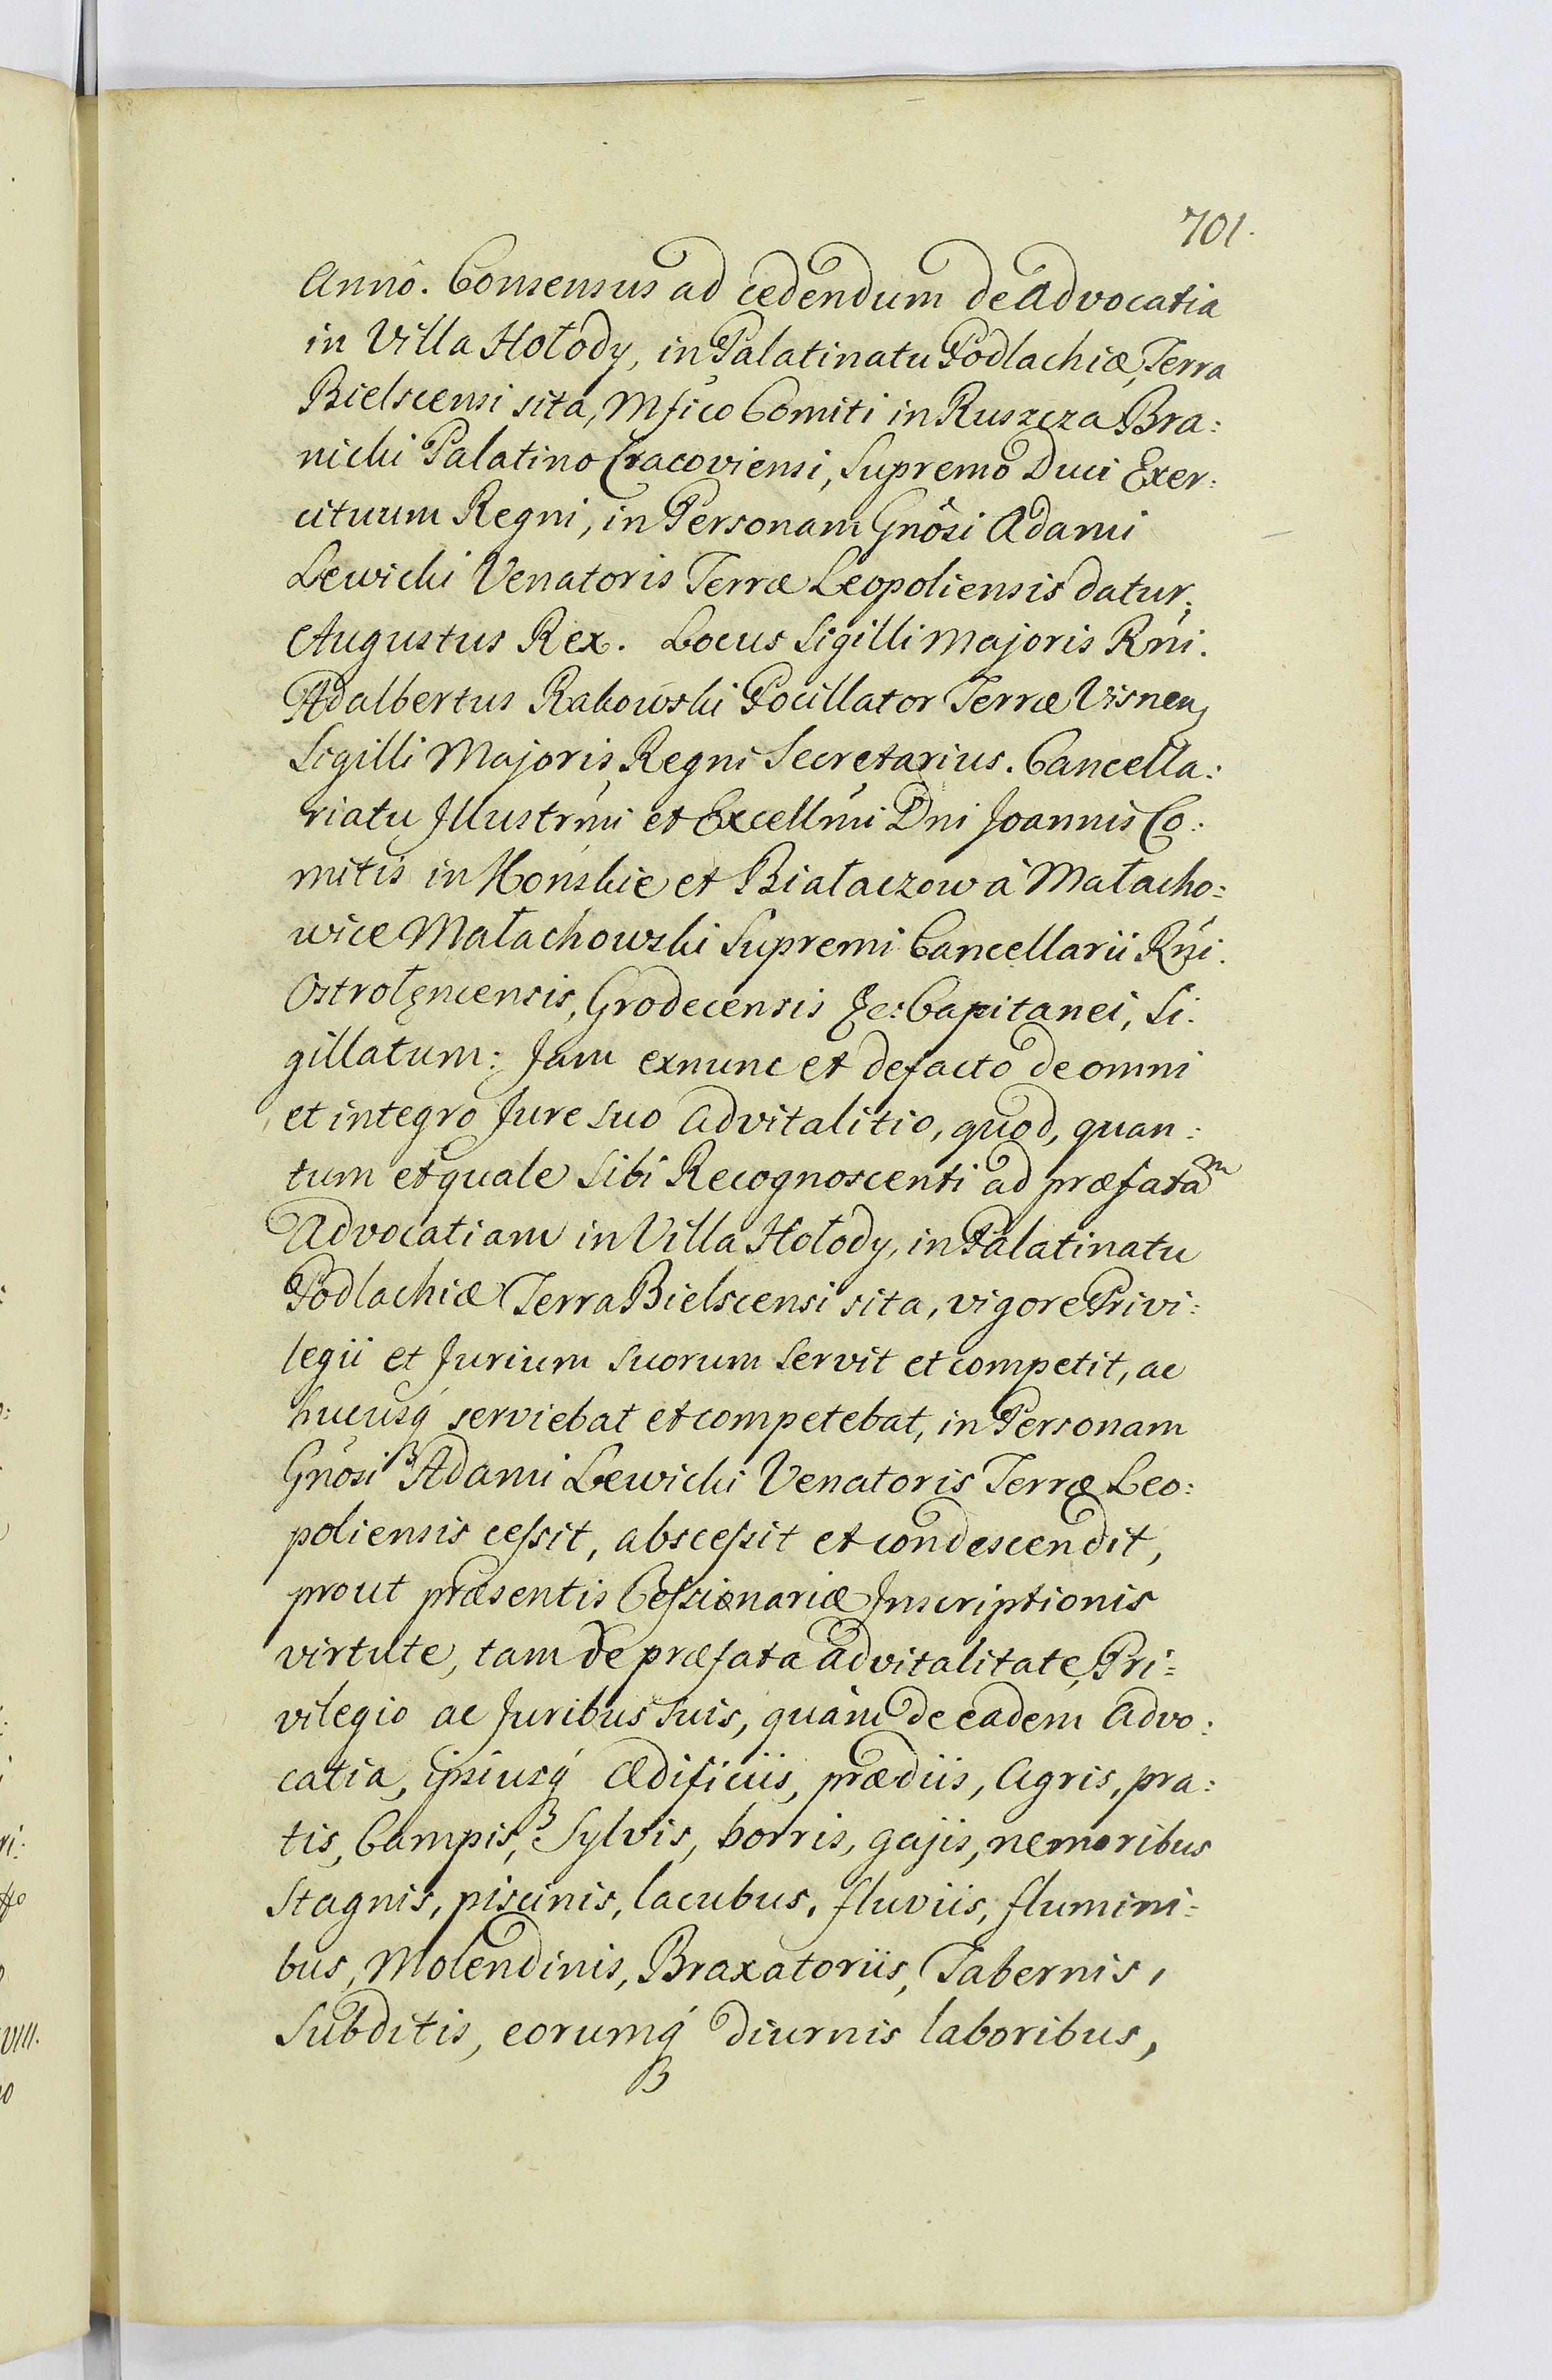 701.
Annô. Consensus ad cedendum de Advocatia
in Villa Hołody, in Palatinatu Podlachiæ, Terra
Bielscensi sita, Mfico Comiti in Ruszcza Bra:
nicki Palatino Cracoviensi, Supremo Duci Exer:
cituum Regni, in Personam Gnôsi Adami
Lewicki Venatoris Terræ Leopoliensis datur.
Augustus Rex. Locus Sigilli Majoris Rni.
Adalbertus Rakowski Pocillator Terræ Visnen,
Sigilli Majoris Regni Secretarius. Cancella:
riatu Illustrmi et Excellmi Dni Joannis Co:
mitis in Końskie et Białaczow à Małacho:
wice Małachowski Supremi Cancellarii Rni.
Ostrołęncensis, Grodecensis &c: Capitanei, Si:
gillatum: Jam exnunc et defacto de omni
et integro Jure suo Advitalitio, quod, quan:
tum et quale Sibi Recognoscenti ad præfatam
Advocatiam in Villa Hołody, in Palatinatu
Podlachiæ Terra Bielscensi sita, vigore Privi:
legii et Jurium suorum servit et competit, ac
hucusq́ serviebat et competebat, in Personam
Gnôsi Adami Lewicki Venatoris Terræ Leo:
poliensis cessit, abscessit et condescendit,
prout præsentis Cessionariæ Inscriptionis
virtute, tam de præfata advitalitate, Pri:
vilegio ac Juribus suis, quàm de eadem Advo:
catia, ipsiusq́ Ædificiis, prædiis, Agris, pra:
tis, Campis, Sylvis, borris, gajis, nemoribus
Stagnis, piscinis, lacubus, fluviis, flumini:
bus, Molendinis, Braxatoriis, Tabernis,
Subditis, eorumq́ diurnis laboribus,